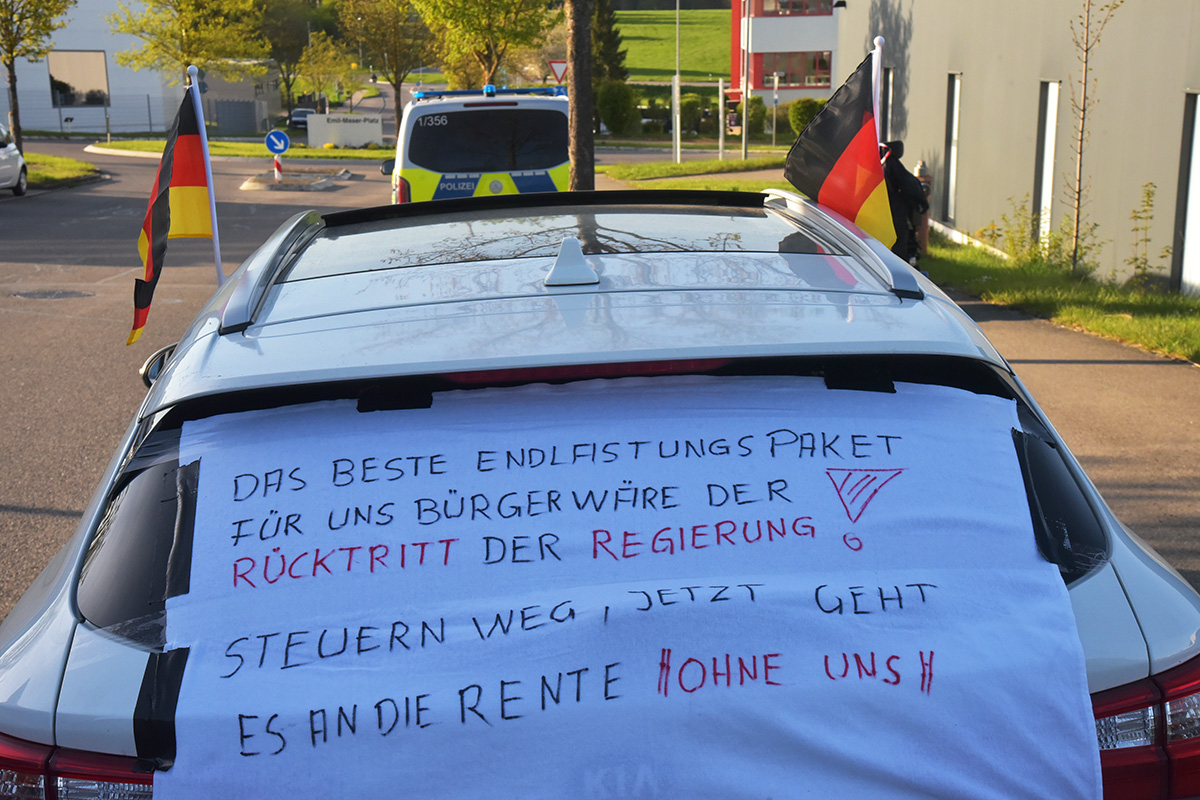 1/356
POLIZEI
Emil-Maser-Platz
DAS BESTE ENDLFISTUNGSPAKET
FÜR UNS BÜRGER WÄRE DER
RÜCKTRITT DER REGIERUNG !
STEUERN WEG, JETZT GEHT
ES AN DIE RENTE !!OHNE UNS!!
KIA